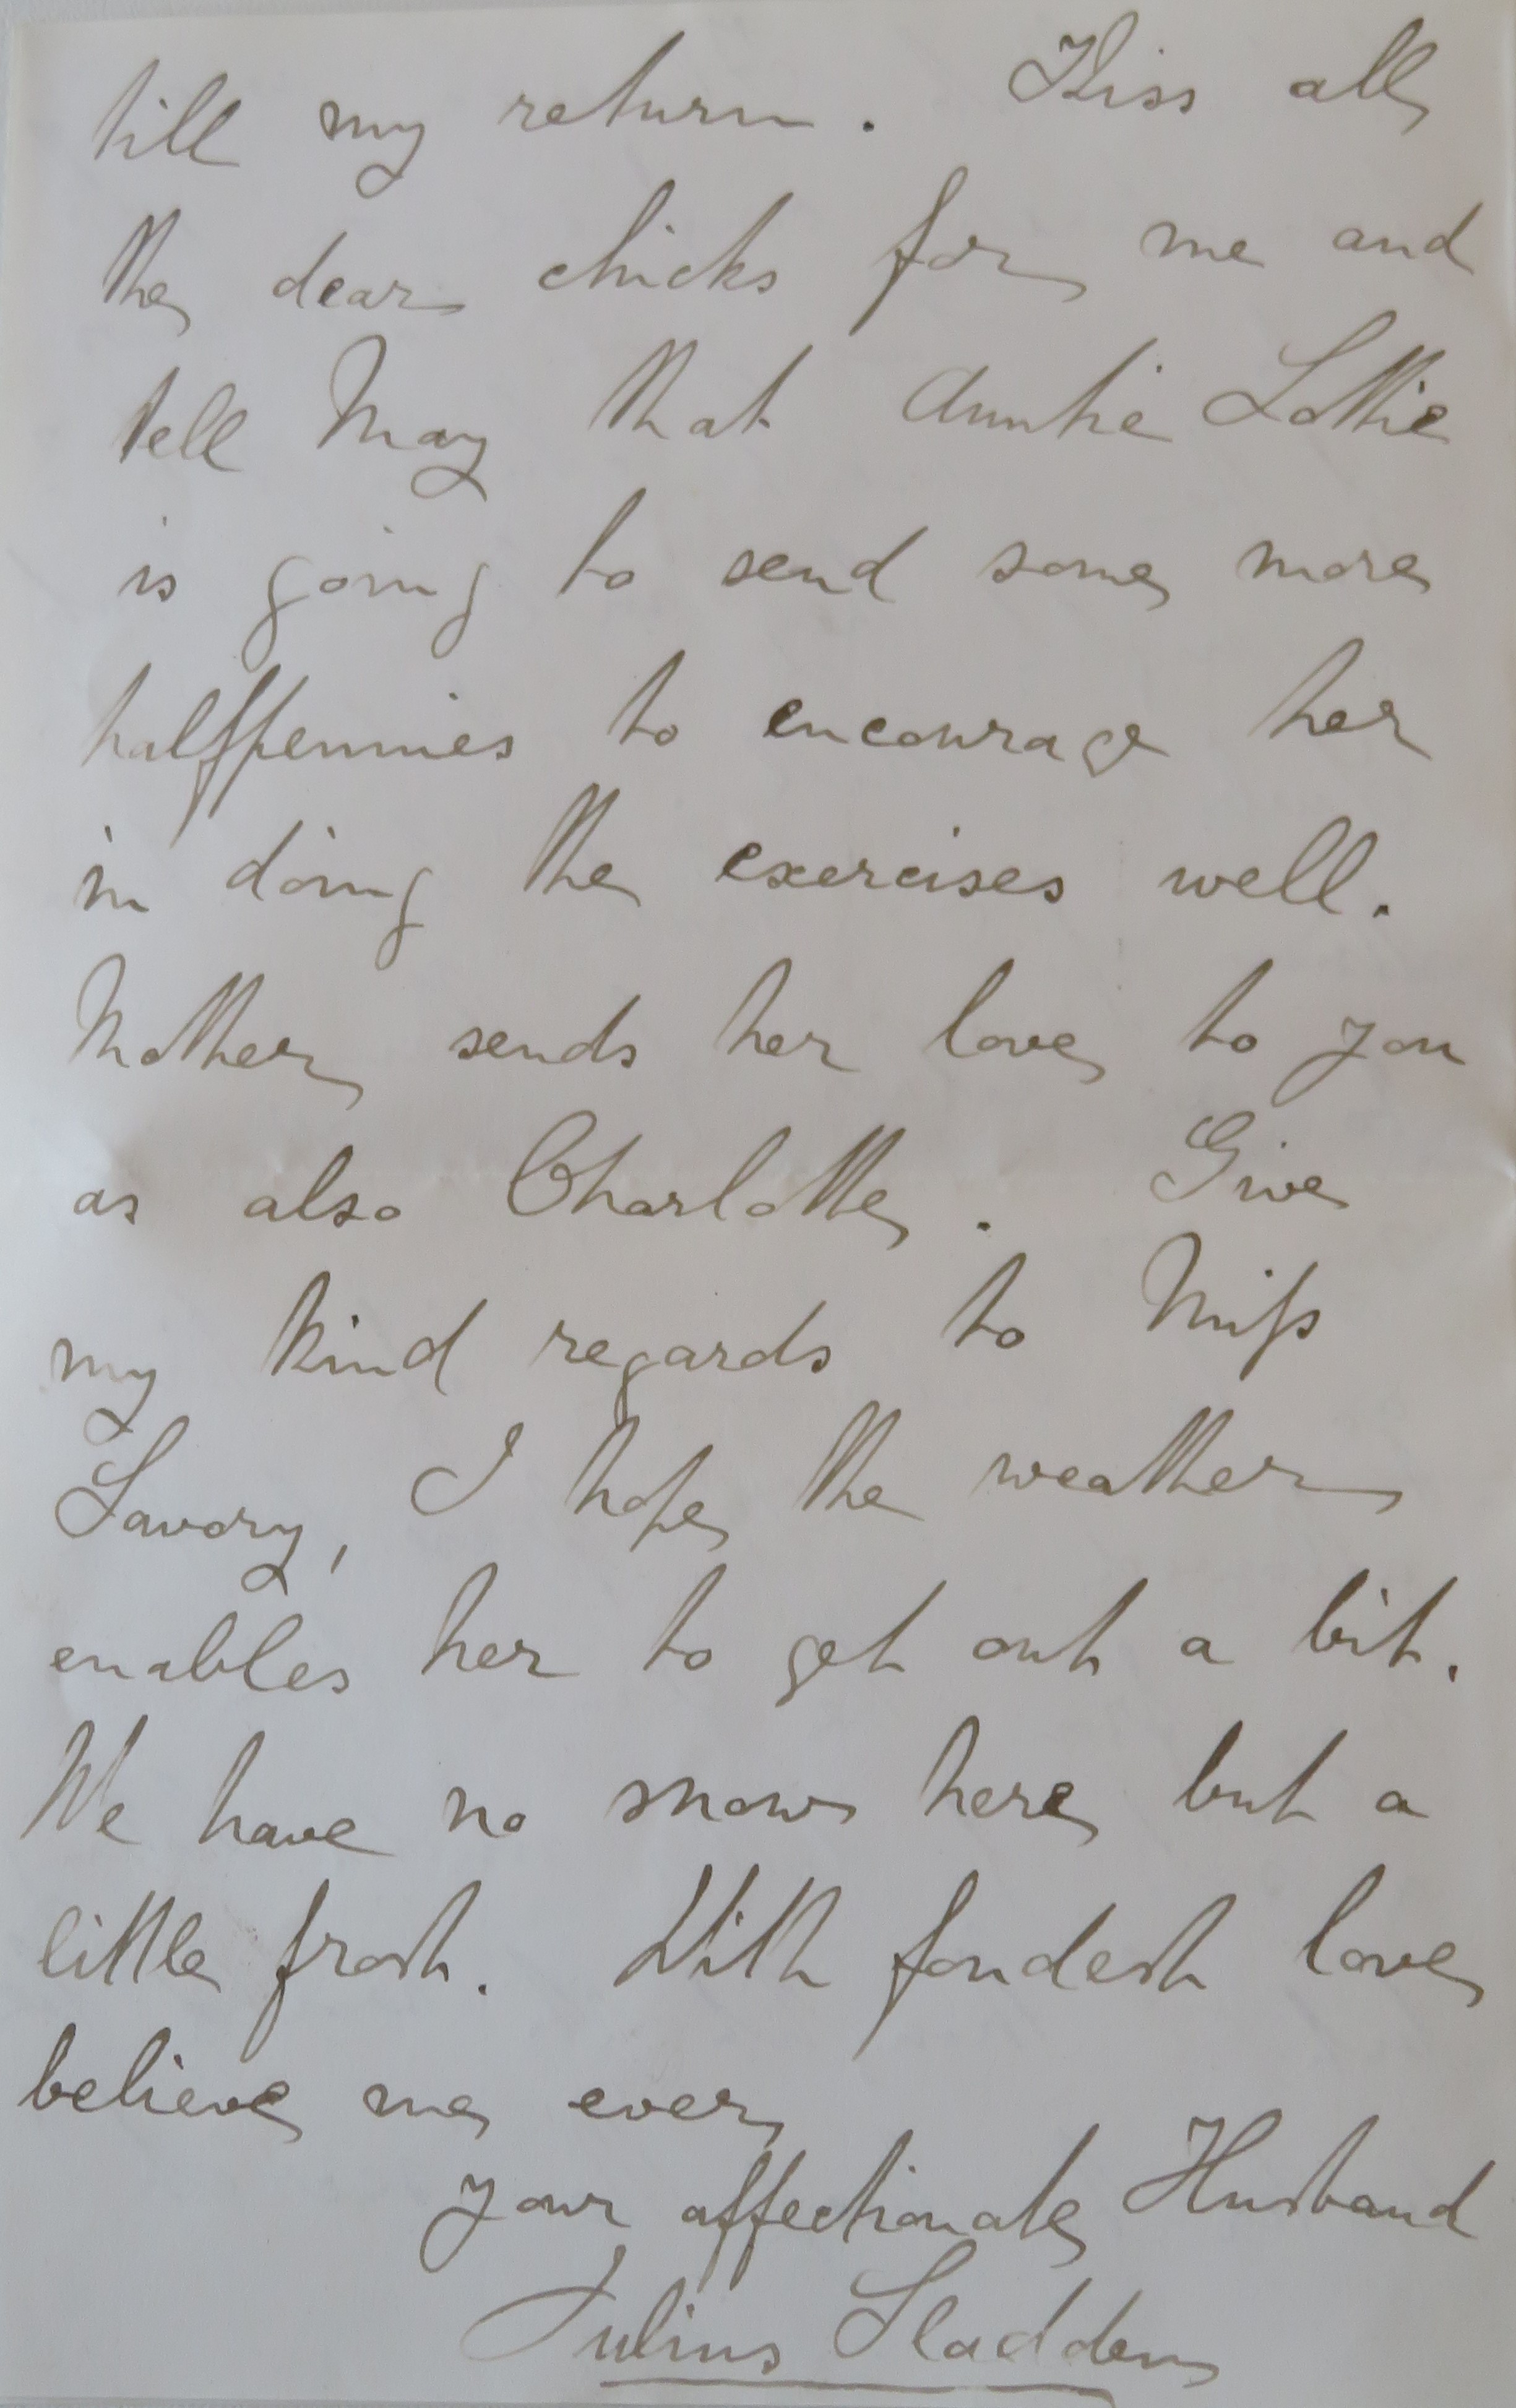 till my return. Kiss all
the dear chicks for me and
tell May that Auntie Lottie
is going to send some more
halfpennies to encourage her
in doing the exercises well.
Mother sends her love to you
as also Charlotte. Give
my kind regards to Miss
Savory, I hope the weather
enables her to get out a bit.
We have no snow here but a
little frost. With fondest love
believe me ever
your affectionate Husband
Julius Sladden